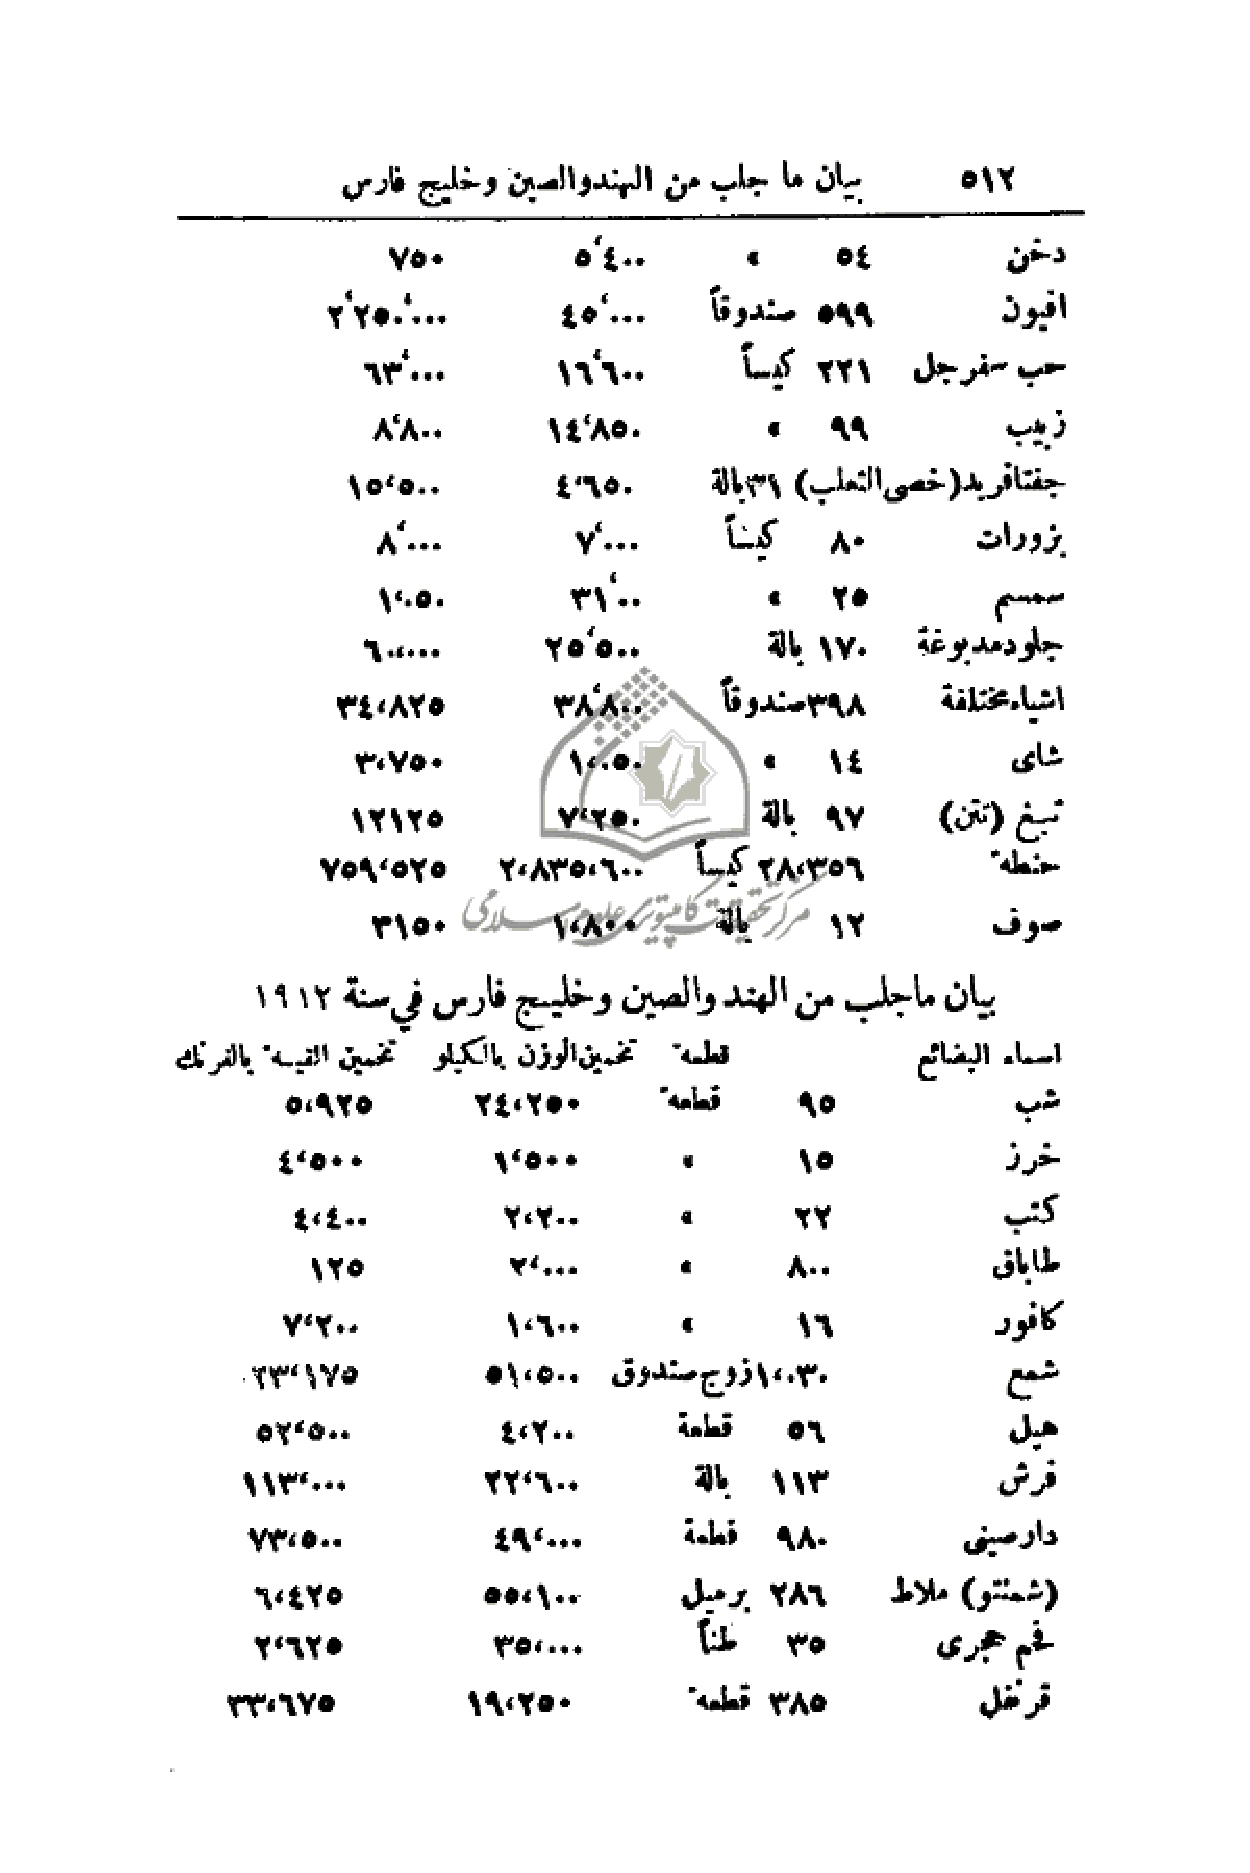 ٥١٢ بيان ما جلب من الهند والصين وخليج فارس
دخن ٥٤ » ٥٬٤٠٠ ٧٥٠
افيون ٥٩٩ صندوقاً ٤٥٬٠٠٠ ٢٬٢٥٠٬٠٠٠
حب سفرجل ٢٢١ كيساً ١٦٬٦٠٠ ٦٣٬٠٠٠
زبيب ٩٩ » ١٤٬٨٥٠ ٨٬٨٠٠
جفتافريد (خصى الثعلب) ٣١ بالة ٤٬٦٥٠ ١٥٬٥٠٠
بزورات ٨٠ كيساً ٧٬٠٠٠ ٨٬٠٠٠
سمسم ٢٥ » ٣١٬٠٠ ١،٠٥٠
جلود مدبوغة ١٧٠ بالة ٢٥٬٥٠٠ ٦٠،٠٠٠
اشياء مختلفة ٣٩٨ صندوقاً ٣٨٬٨٠٠ ٣٤،٨٢٥
شاى ١٤ » ١،٠٥٠ ٣،٧٥٠
تبغ (تتن) ٩٧ بالة ٧٬٢٥٠ ١٢١٢٥
حنطة ٢٨،٣٥٦ كيساً ٢،٨٣٥،٦٠٠ ٧٥٩٬٥٢٥
صوف ١٢ بالة ١،٨٠٠ ٣١٥٠
مركز تحقيقات كامپيوتري علوم اسلامي
بيان ماجلب من الهند والصين وخليج فارس في سنة ١٩١٢
اسماء البضائع قطعة تخمين الوزن بالكيلو تخمين القيمة بالفرنك
شب ٩٥ قطعة ٢٤،٢٥٠ ٥،٩٢٥
خرز ١٥ » ٦٬٥٠٠ ٤٬٥٠٠
كتب ٢٢ » ٢،٢٠٠ ٤،٤٠٠
طاباق ٨٠٠ » ٢٬٠٠٠ ١٢٥
كافور ١٦ » ١،٦٠٠ ٧٬٢٠٠
شمع ١،٠٣٠ زوج صندوق ٥١،٥٠٠ ٢٣٬١٧٥
هيل ٥٦ قطعة ٤،٢٠٠ ٥٢٬٥٠٠
فرش ١١٣ بالة ٢٢٬٦٠٠ ١١٣٬٠٠٠
دارصيني ٩٨٠ قطعة ٤٩٬٠٠٠ ٧٣،٥٠٠
(شمنتو) ملاط ٢٨٦ برميل ٥٥،١٠٠ ٦،٤٢٥
فحم حجرى ٣٥ طناً ٣٥،٠٠٠ ٢٬٦٢٥
قرنفل ٣٨٥ قطعة ١٩،٢٥٠ ٣٣،٦٧٥